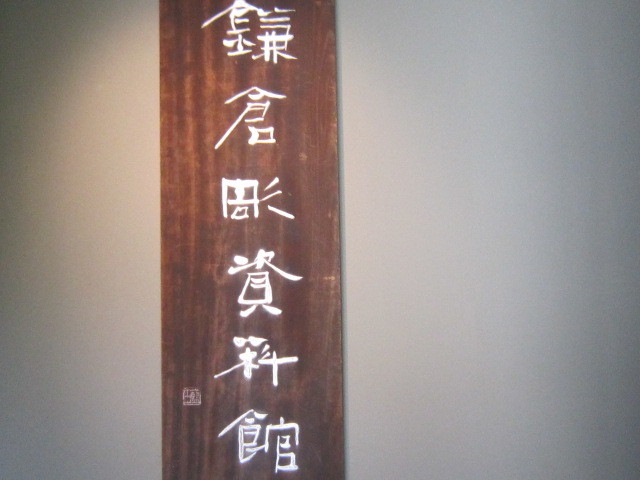 鎌倉彫資料館